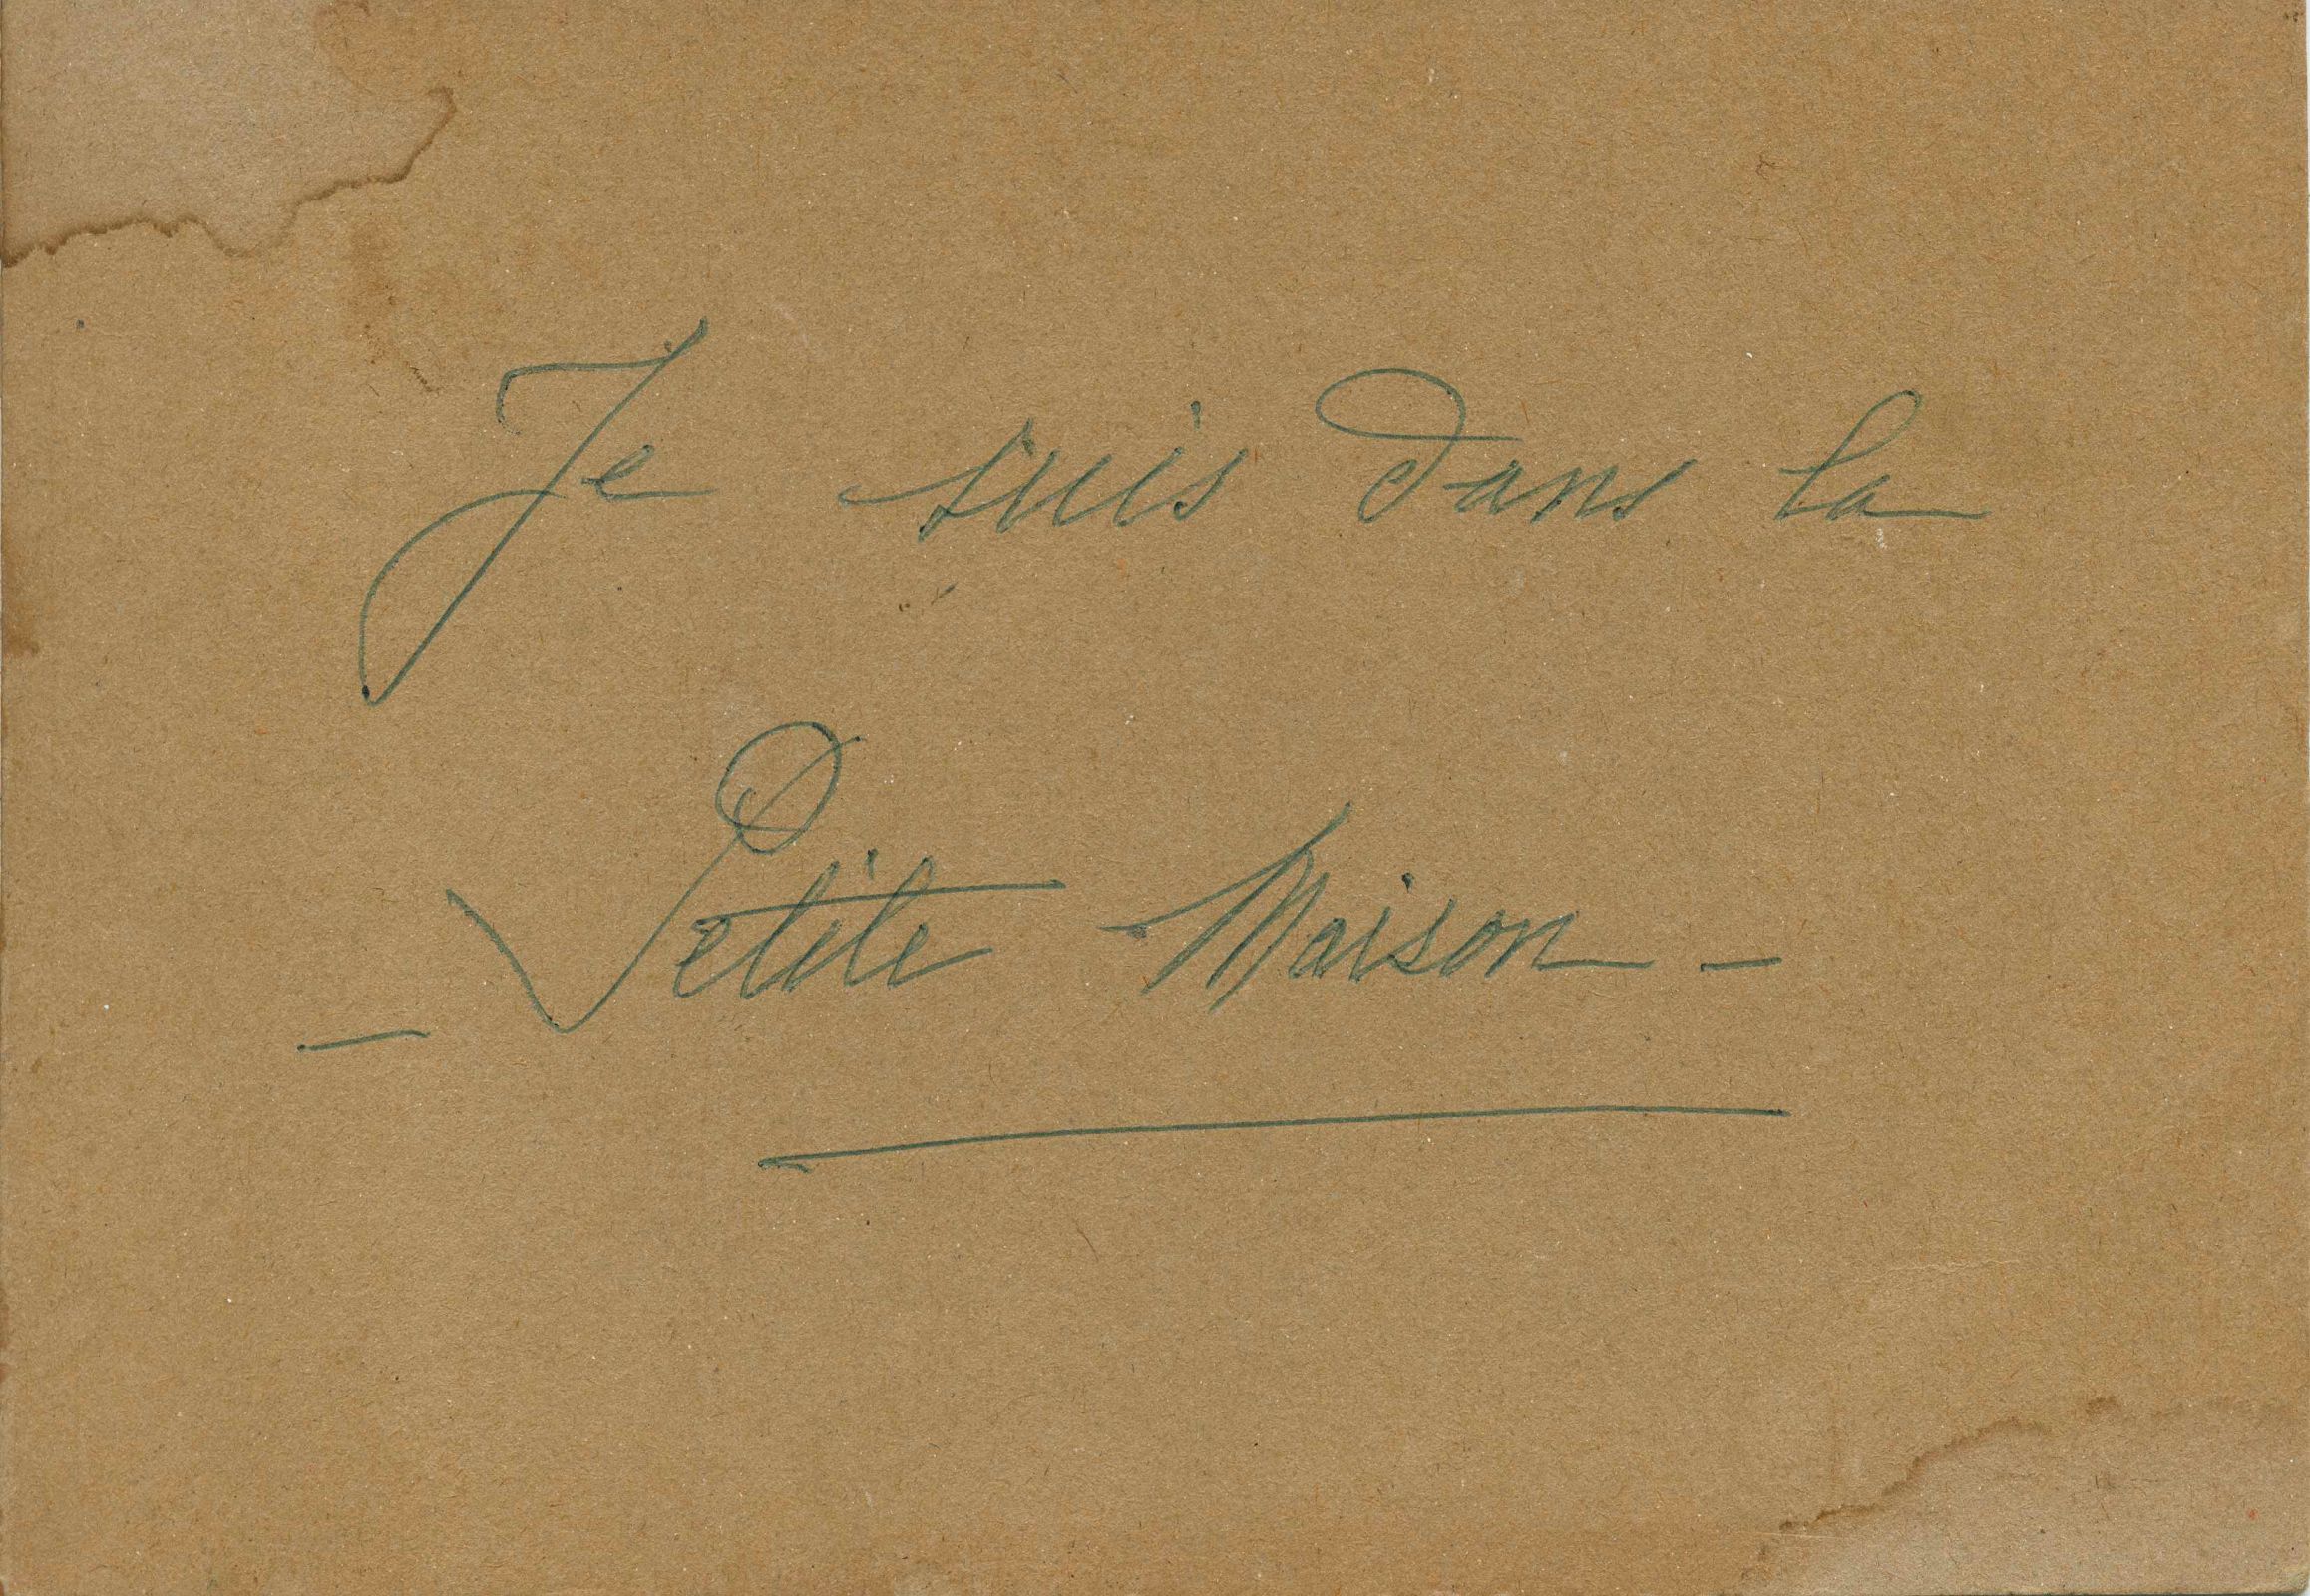 Je suis dans la
- Petite Maison -